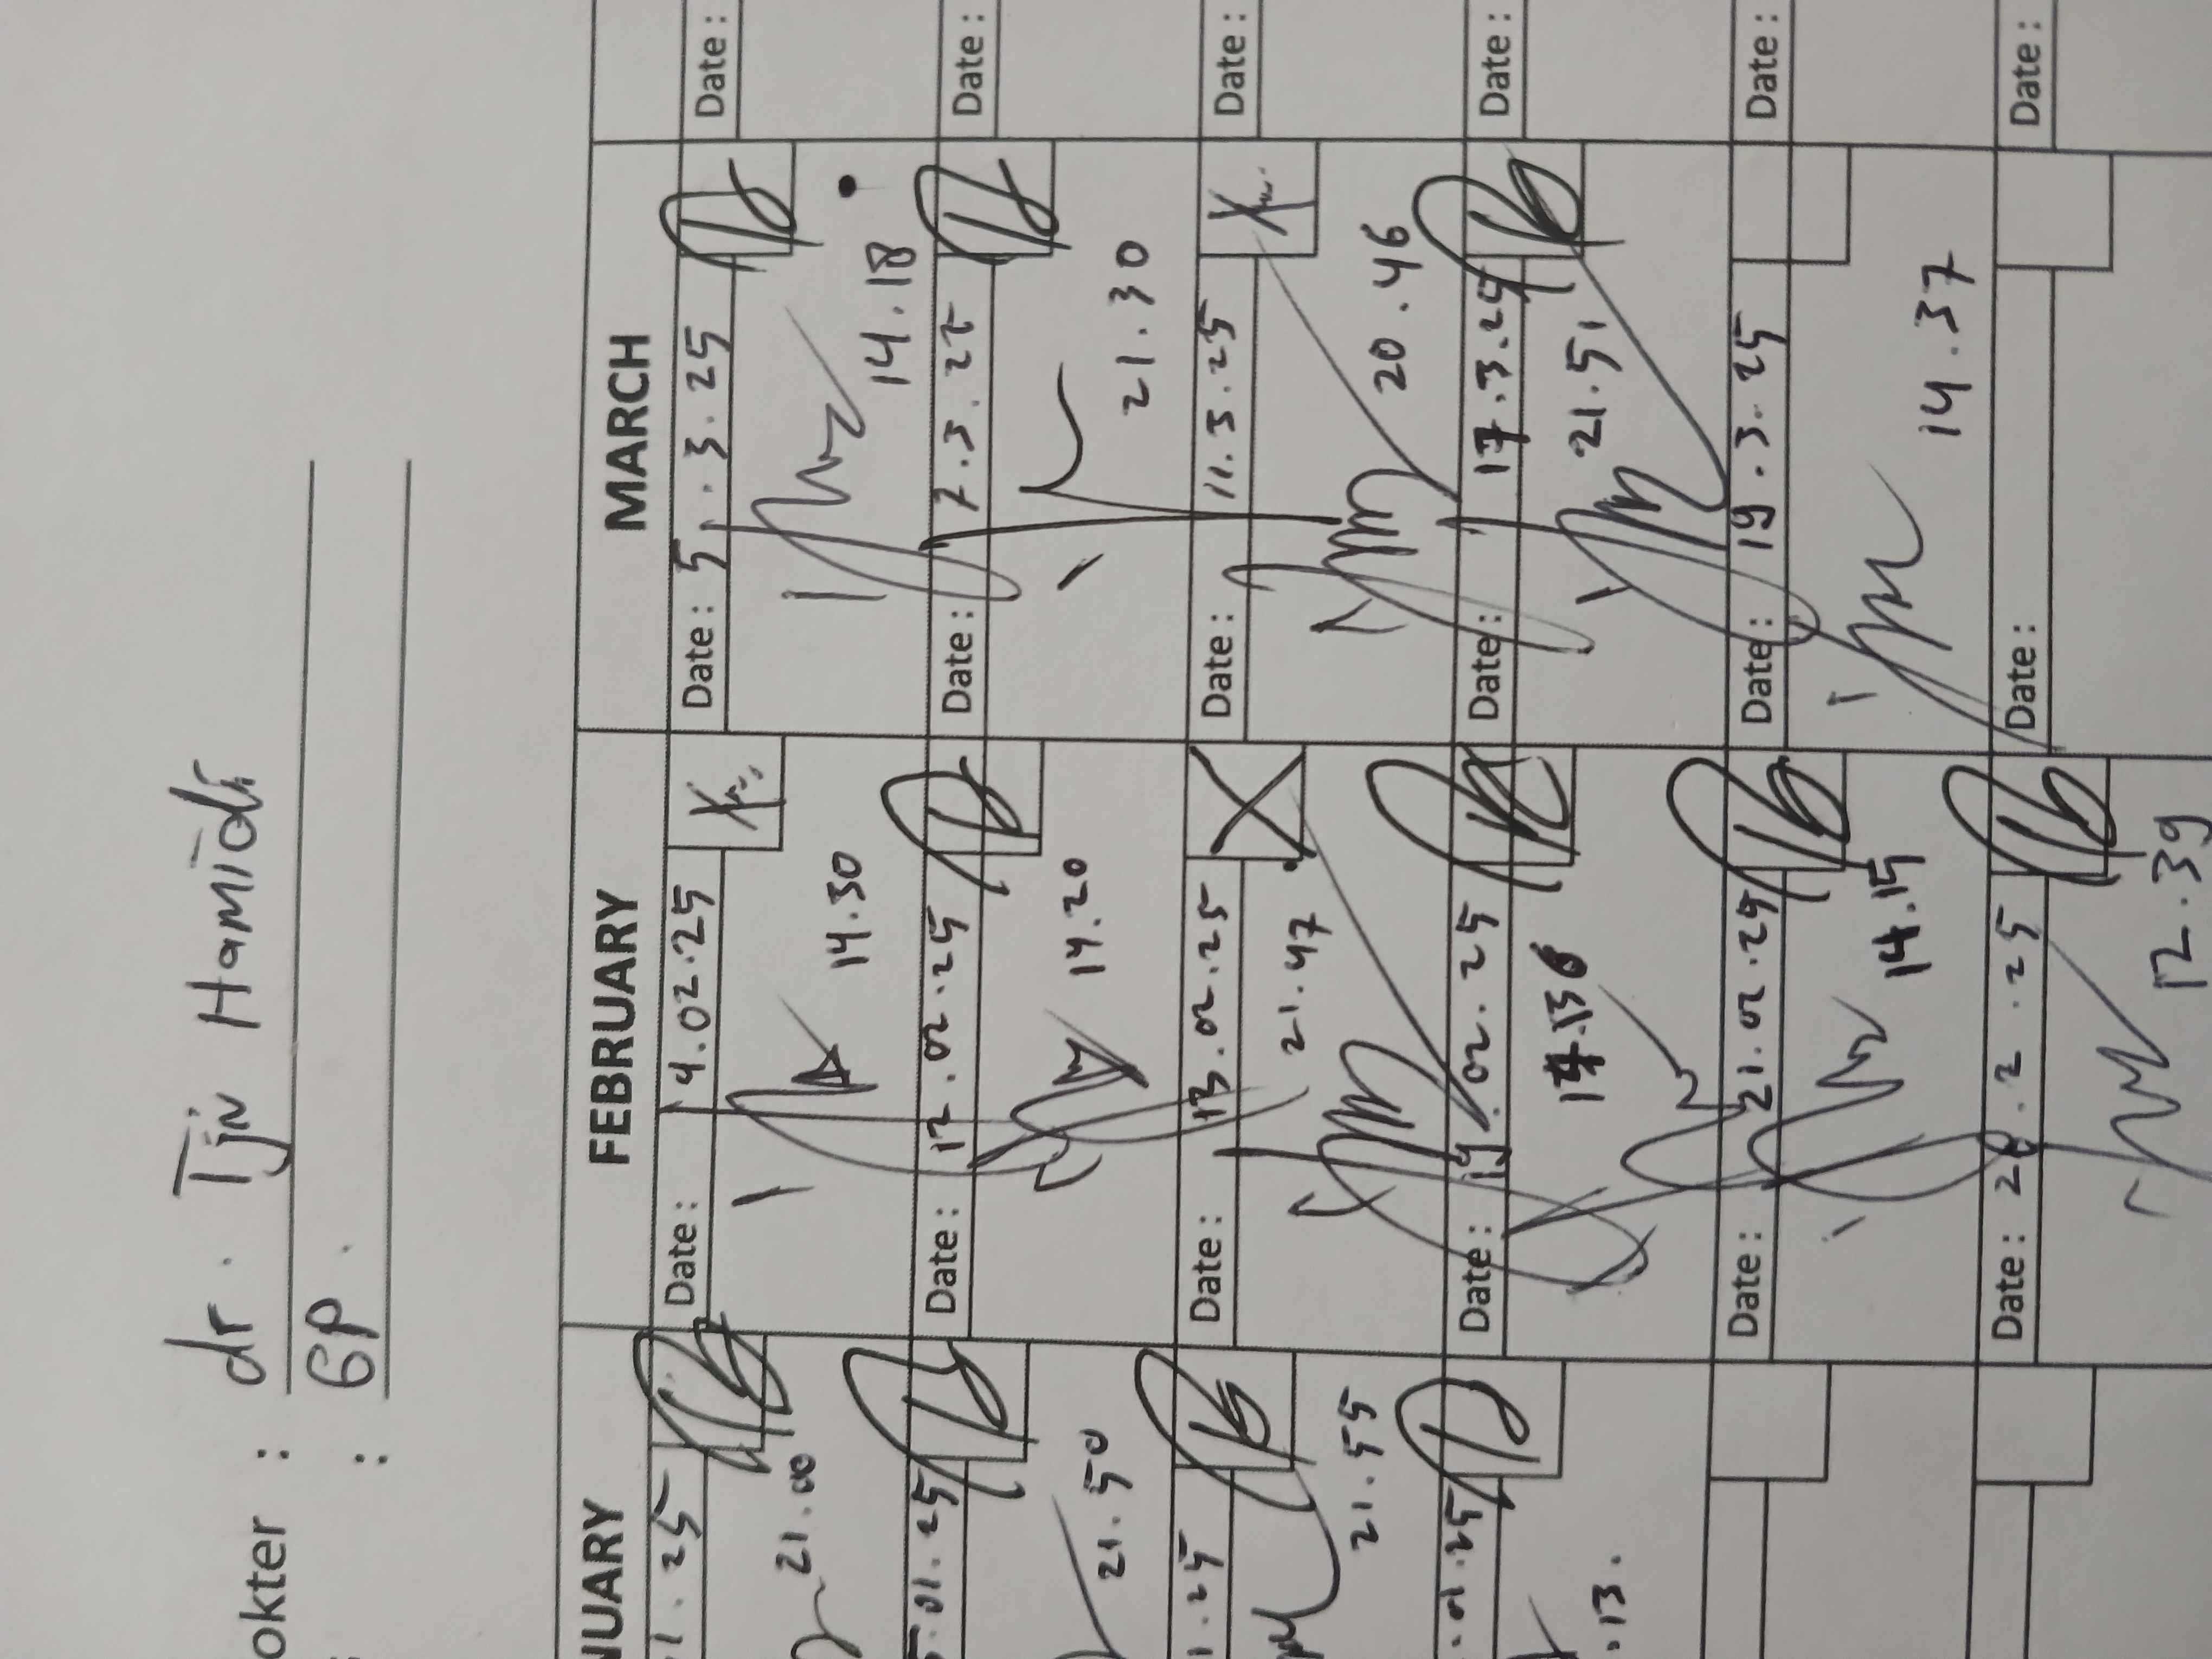 okter : dr. Tjw Hamidi
: GP.
NUARY FEBRUARY MARCH
1.25 Date: 4.02.25 Date: 5.3.25 Date:
21.00 14.30 14.18
5.01.25 Date: 12.02.25 Date: 7.3.25 Date:
21.50 14.20 21.30
1.25 Date: 13.02.25 Date: 11.3.25 Date:
21.55 21.47 20.46
.01.25 Date: 19.02.25 Date: 17.3.25 Date:
.13. 21.51
Date: 21.02.25 Date: 19.3.25 Date:
14.15 14.37
Date: 28.2.25 Date: Date:
12.39